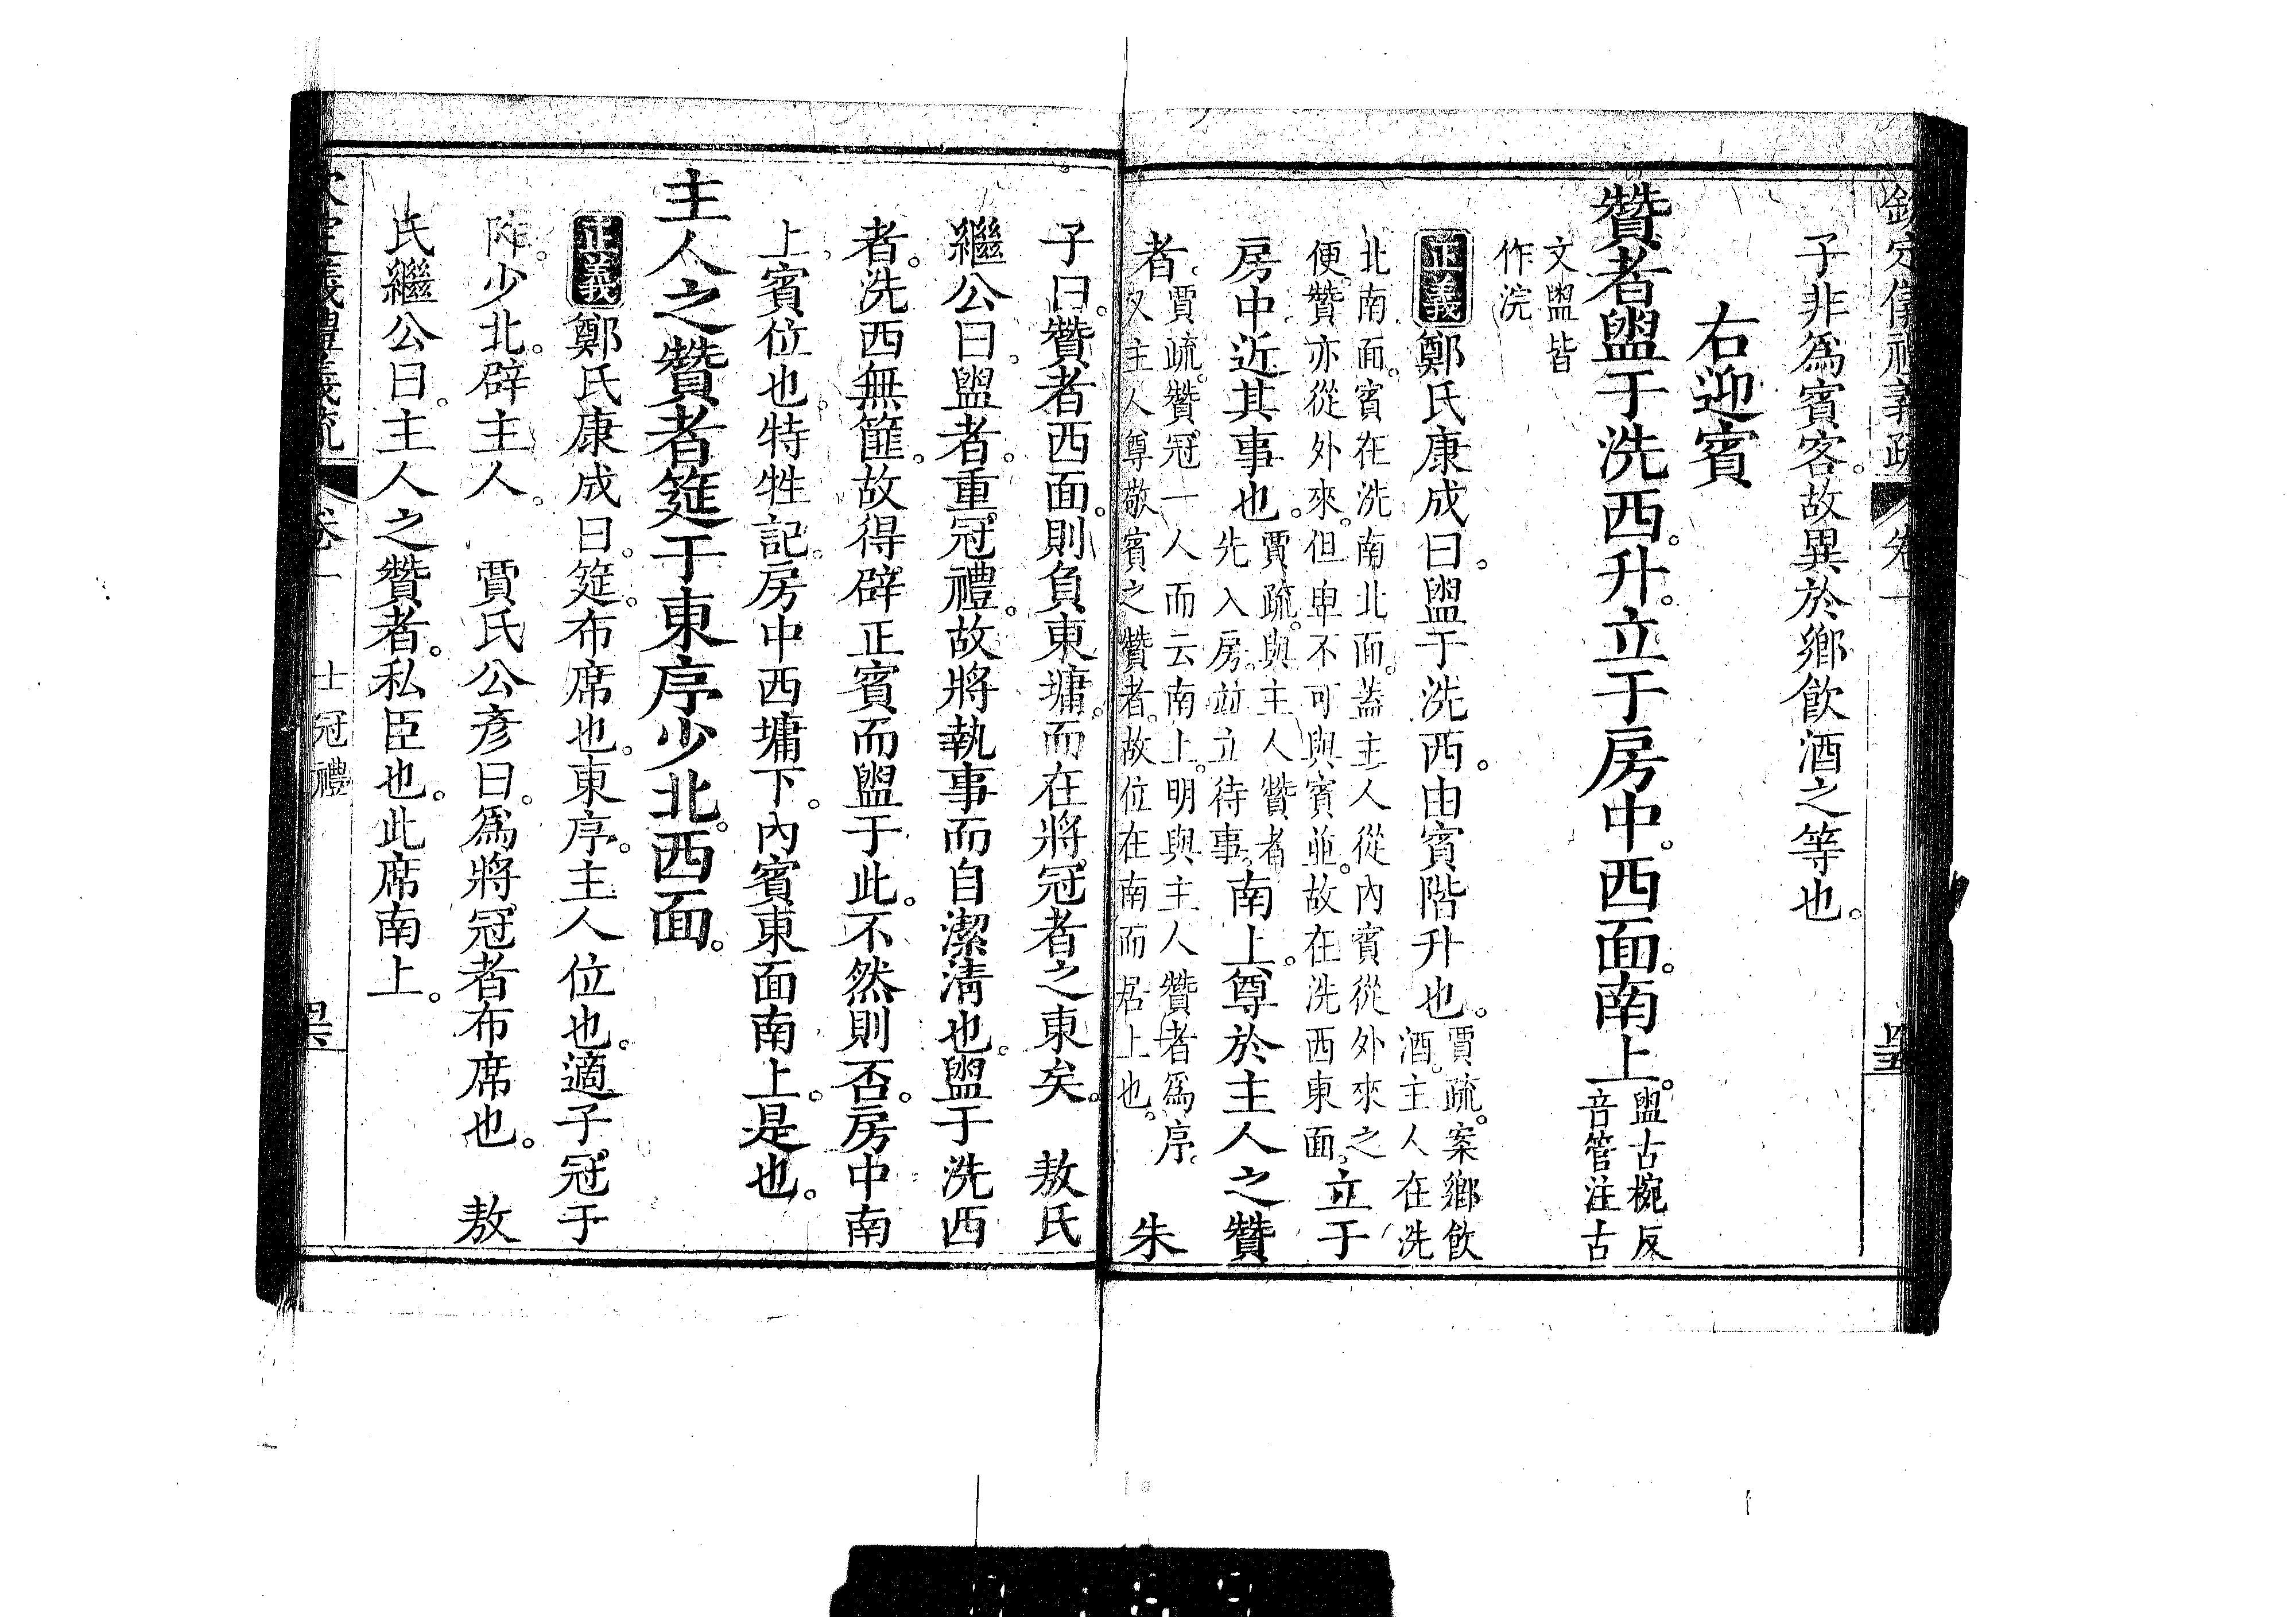 欽定儀禮義疏 卷一 四五
子非爲賓客。故異於鄉飮酒之等也。
右迎賓
贊者盥于洗西。升。立于房中。西面。南上。盥古椀反
音管注古
文盥皆
作浣
正義鄭氏康成曰。盥于洗西。由賓階升也。賈疏。案鄉飮
酒。主人在洗
北南面。賓在洗南北面。蓋主人從內賓從外來之
便。贊亦從外來。但卑不可與賓並。故在洗西東面。立于
房中近其事也。賈疏。與主人贊者
先入房。並立待事。南上。尊於主人之贊
者。賈疏。贊冠一人而云南上。明與主人贊者爲序。
又主人尊敬賓之贊者。故位在南而居上也。 朱
子曰。贊者西面。則負東墉。而在將冠者之東矣。 敖氏
繼公曰。盥者。重冠禮。故將執事而自潔淸也。盥于洗西
者。洗西無篚。故得辟正賓而盥于此。不然則否。房中南
上。賓位也。特牲記。房中西墉下。內賓東面南上。是也。
主人之贊者筵于東序少北。西面。
正義鄭氏康成曰。筵。布席也。東序。主人位也。適子冠于
阼。少北。辟主人。 賈氏公彥曰。爲將冠者布席也。 敖
氏繼公曰。主人之贊者。私臣也。此席南上。
欽定儀禮義疏 卷一 士冠禮 四六